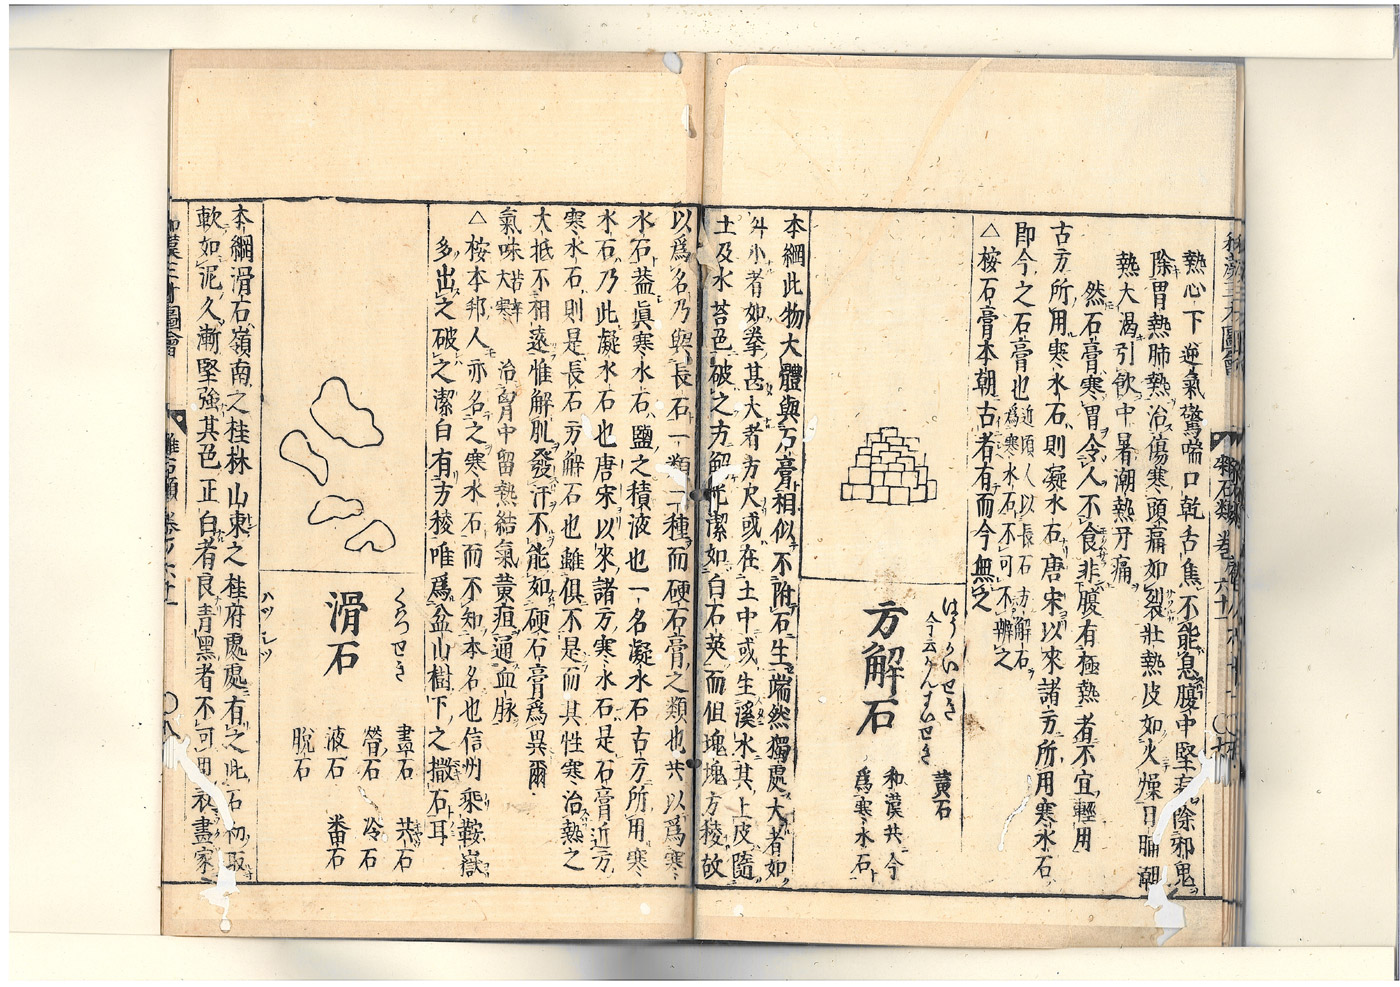 熱心下逆氣驚喘口乾舌焦不能息腹中堅
除邪鬼
除胃熱肺熱治傷寒頭痛如裂壯熱皮如火燥日晡潮
熱大渴引飲中暑潮熱牙痛
然石膏寒胃令人不食非腹有極熱者不宜輕用
古方所用寒水石則凝水石唐宋以來諸方所用寒水石
即今之石膏也近頃人以長石方解石
爲寒水石不可不辨之
△桉石膏本朝古者有而今無之
はうかいせき
方解石
黄石
和漢共今
爲寒水石
本綱此物大體與石膏相似不附石生端然獨處大者如
升小者如拳甚大者方尺或在土中或生溪水其上皮隨
土及水苔色破之方解光潔如白石英而但塊塊方稜故
以爲名乃與長石一類二種而硬石膏之類也共以爲寒
水石葢眞寒水石鹽之積液也一名凝水石古方所用寒
水石乃此凝水石也唐宋以來諸方寒水石是石膏近方
寒水石則是長石方解石也雖俱不是而其性寒治熱之
大抵不相遠惟解肌發汗不能如硬石膏爲異爾
氣味苦辛
大寒
治胷中留熱結氣黄疸通血脉
△桉本邦人亦名之寒水石而不知本名也信州乘鞍嶽
多出之破之潔白有方稜唯爲盆山樹下之撒石耳
くわつせき
滑石
ハッ シッ
畫石
共石
膋石
冷石
液石
番石
脫石
本綱滑石嶺南之桂林山東之桂府處處有之此石初取
軟如泥久漸堅強其色正白者良青黑者不可用衣畫家